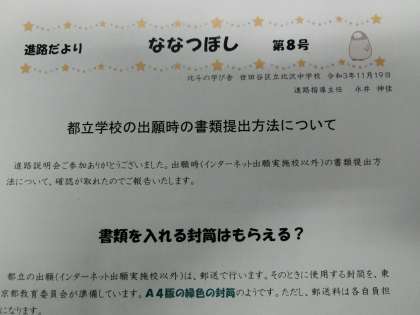 進路だより　ななつぼし　第8号
北斗の学び舎　世田谷区立北沢中学校　令和3年11月19日
進路指導主任　永井　伸佳
都立学校の出願時の書類提出方法について
進路説明会ご参加ありがとうございました。出願時(インターネット出願実施校以外)の書類提出方
法について、確認が取れたのでご報告いたします。
書類を入れる封筒はもらえる？
都立の出願(インターネット出願実施校以外)は、郵送で行います。そのときに使用する封筒を、東
京都教育委員会が準備しています。A4版の緑色の封筒のようです。ただし、郵送料は各自負担
になります。